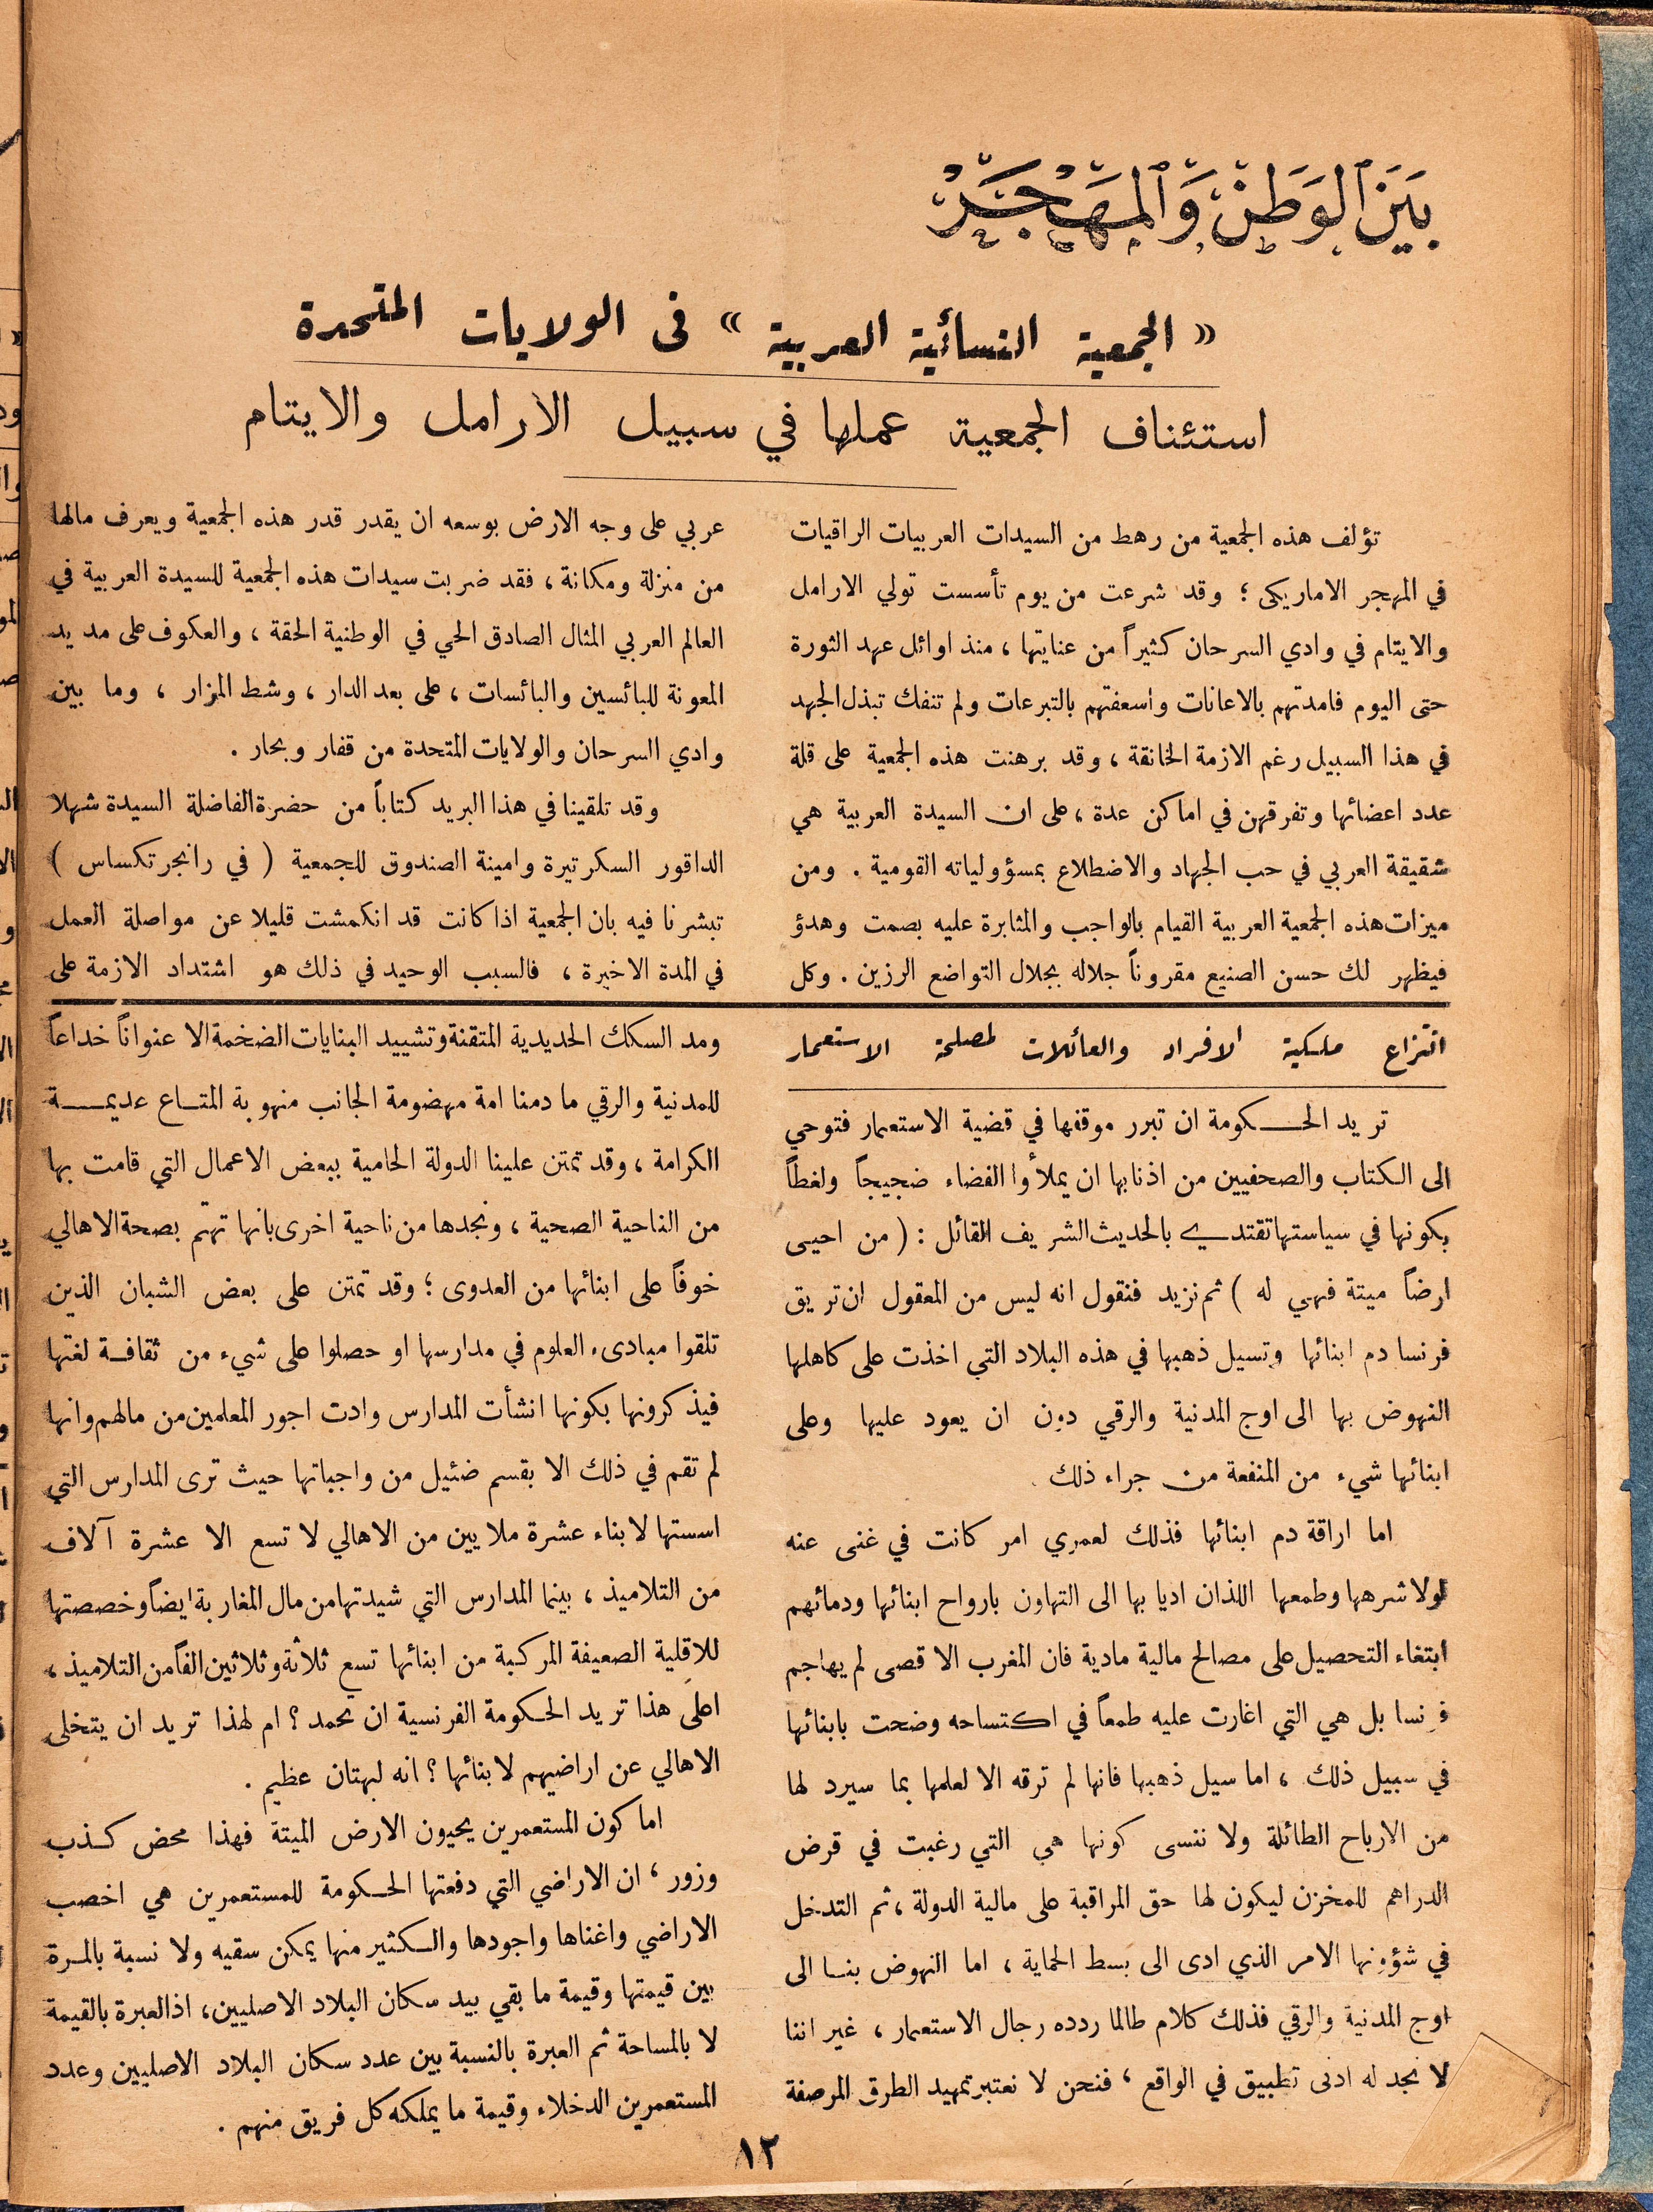 بَيْنَ ٱلْوَطَنْ وَٱلْمَهْجَرْ
« الجمعية النسائية العربية » فى الولايات المتحدة
استئناف الجمعية عملها في سبيل الارامل والايتام
تؤلف هذه الجمعية من رهط من السيدات العربيات الراقيات
في المهجر الاماريكى ؛ وقد شرعت من يوم تأسست تولي الارامل
والايتام في وادي السرحان كثيراً من عنايتها ، منذ اوائل عهد الثورة
حتى اليوم فامدتهم بالاعانات واسعفتهم بالتبرعات ولم تنفك تبذل الجهد
في هذا السبيل رغم الازمة الخانقة ، وقد برهنت هذه الجمعية على قلة
عدد اعضائها وتفرقهن في اماكن عدة ، على ان السيدة العربية هي
شقيقة العربي في حب الجهاد والاضطلاع بمسؤولياته القومية . ومن
ميزات هذه الجمعية العربية القيام بالواجب والمثابرة عليه بصمت وهدؤ
فيظهر لك حسن الصنيع مقروناً جلاله بجلال التواضع الرزين . وكل
عربي على وجه الارض بوسعه ان يقدر قدر هذه الجمعية ويعرف مالها
من منزلة ومكانة ، فقد ضربت سيدات هذه الجمعية للسيدة العربية في
العالم العربي المثال الصادق الحي في الوطنية الحقة ، والعكوف على مد يد
المعونة للبائسين والبائسات ، على بعد الدار ، وشط المزار ، وما بين
وادي السرحان والولايات المتحدة من قفار وبحار .
وقد تلقينا في هذا البريد كتاباً من حضرة الفاضلة السيدة شهلا
الداقور السكرتيرة وامينة الصندوق للجمعية ( في رانجر تكساس )
تبشرنا فيه بان الجمعية اذا كانت قد انكمشت قليلا عن مواصلة العمل
في المدة الاخيرة ، فالسبب الوحيد في ذلك هو اشتداد الازمة على
انتزاع ملكية الافراد والعائلات لمصلحة الاستعمار
تريد الحكومة ان تبرر موقفها في قضية الاستعمار فتوحي
الى الكتاب والصحفيين من اذنابها ان يملأوا الفضاء ضجيجاً ولغطاً
بكونها في سياستها تقتدي بالحديث الشريف القائل : ( من احيى
ارضاً ميتة فهي له ) ثم نزيد فنقول انه ليس من المعقول ان تريق
فرنسا دم ابنائها وتسيل ذهبها في هذه البلاد التي اخذت على كاهلها
النهوض بها الى اوج المدنية والرقي دون ان يعود عليها وعلى
ابنائها شيء من المنفعة من جراء ذلك .
اما اراقة دم ابنائها فذلك لعمري امر كانت في غنى عنه
لولا شرهها وطمعها اللذان اديا بها الى التهاون بارواح ابنائها ودمائهم
ابتغاء التحصيل على مصالح مالية مادية فان المغرب الاقصى لم يهاجم
فرنسا بل هي التي اغارت عليه طمعاً في اكتساحه وضحت بابنائها
في سبيل ذلك ، اما سيل ذهبها فانها لم ترقه الا لعلمها بما سيرد لها
من الارباح الطائلة ولا ننسى كونها هي التي رغبت في قرض
الدراهم للمخزن ليكون لها حق المراقبة على مالية الدولة ، ثم التدخل
في شؤونها الامر الذي ادى الى بسط الحماية ، اما النهوض بنا الى
اوج المدنية والرقي فذلك كلام طالما ردده رجال الاستعمار ، غير اننا
لا نجد له ادنى تطبيق في الواقع ، فنحن لا نعتبر تمهيد الطرق المرصفة
ومد السكك الحديدية المتقنة وتشييد البنايات الضخمة الا عنواناً خداعاً
للمدنية والرقي ما دمنا امة مهضومة الجانب منهوبة المتاع عديمة
الكرامة ، وقد تمتن علينا الدولة الحامية ببعض الاعمال التي قامت بها
من الناحية الصحية ، ونجدها من ناحية اخرى بانها تهتم بصحة الاهالي
خوفاً على ابنائها من العدوى ؛ وقد تمتن على بعض الشبان الذين
تلقوا مبادىء العلوم في مدارسها او حصلوا على شيء من ثقافة لغتها
فيذكرونها بكونها انشأت المدارس وادت اجور المعلمين من مالهم وانها
لم تقم في ذلك الا بقسم ضئيل من واجباتها حيث ترى المدارس التي
اسستها لابناء عشرة ملايين من الاهالي لا تسع الا عشرة آلاف
من التلاميذ ، بينما المدارس التي شيدتها من مال المغاربة ايضاً وخصصتها
للاقلية الصعيفة المركبة من ابنائها تسع ثلاثة وثلاثين الفاً من التلاميذ ،
اعلى هذا تريد الحكومة الفرنسية ان تحمد ؟ ام لهذا تريد ان يتخلى
الاهالي عن اراضيهم لابنائها ؟ انه لبهتان عظيم .
اما كون المستعمرين يحيون الارض الميتة فهذا محض كذب
وزور ، ان الاراضي التي دفعتها الحكومة للمستعمرين هي اخصب
الاراضي واغناها واجودها والكثير منها يمكن سقيه ولا نسبة بالمرة
بين قيمتها وقيمة ما بقي بيد سكان البلاد الاصليين ، اذ العبرة بالقيمة
لا بالمساحة ثم العبرة بالنسبة بين عدد سكان البلاد الاصليين وعدد
المستعمرين الدخلاء وقيمة ما يملكه كل فريق منهم .
١٢